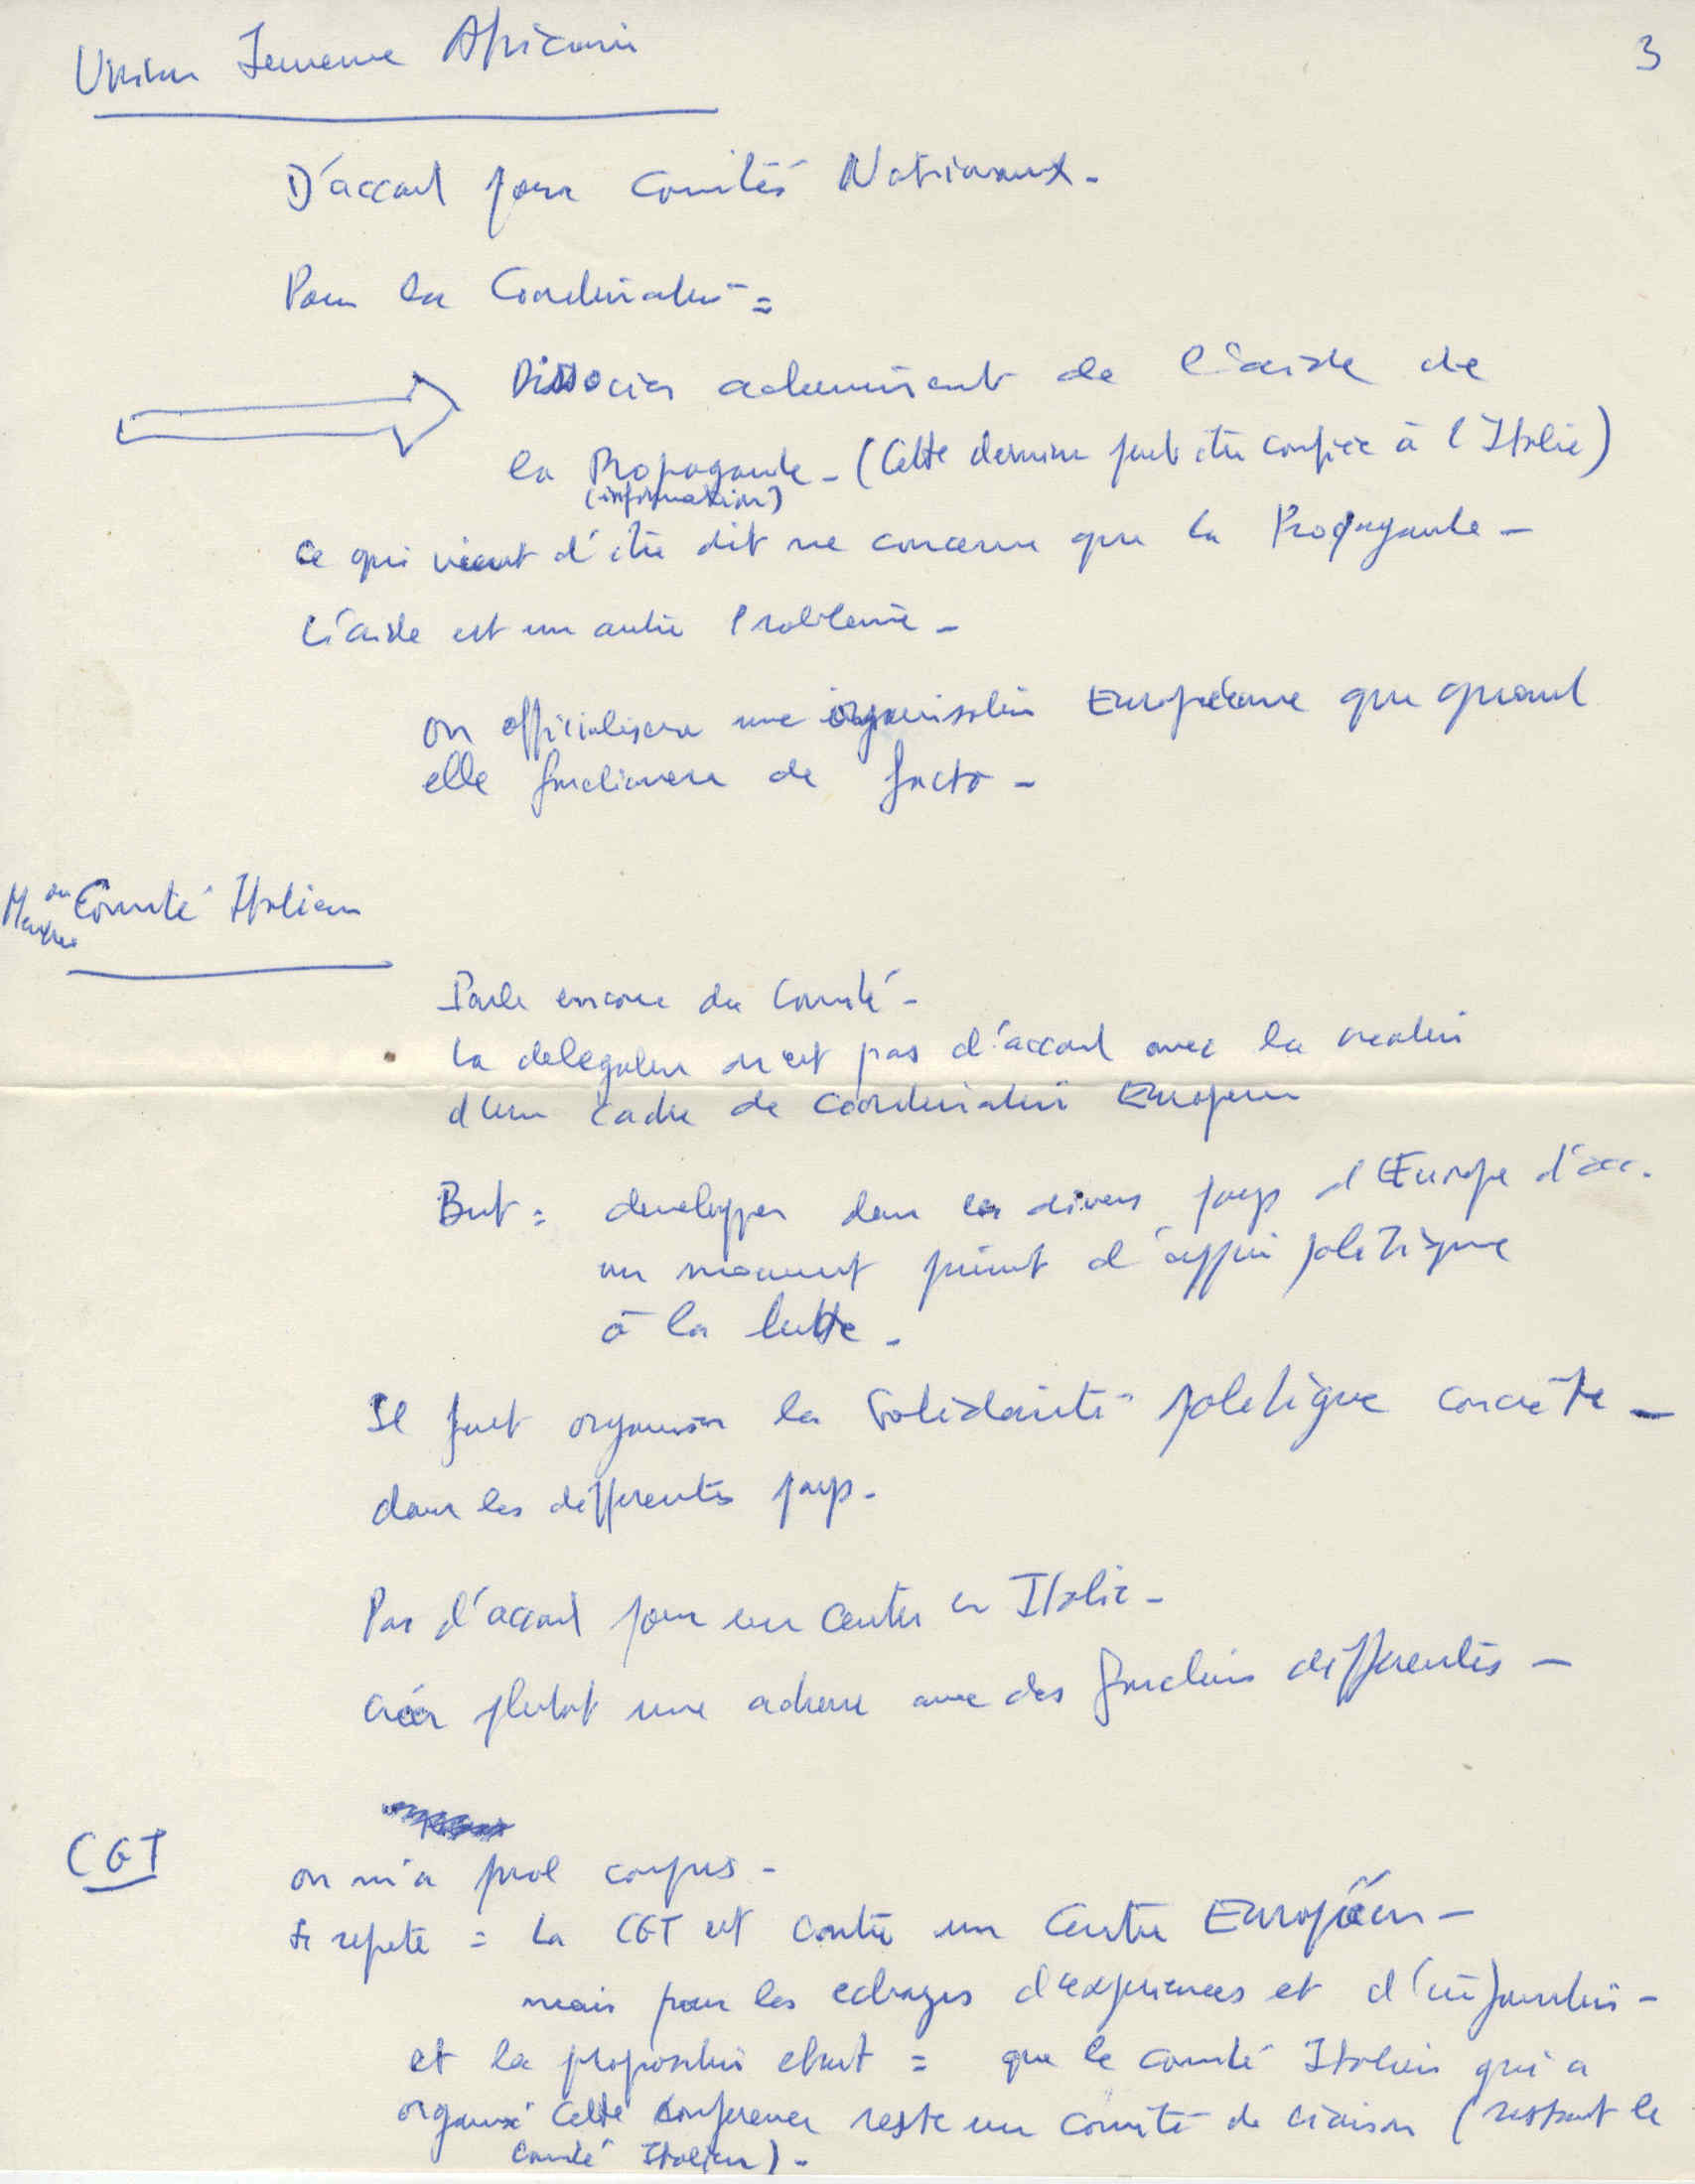 3
Union Jeunesse Africain
D'accord pour Comités Nationaux -
Pour la Coordination =
Dissocier de l'aide de
la Propagande - (Cette dernière peut être confiée à l'Italie)
(information)
Ce qui vient d'être dit ne concerne que la Propagande -
L'aide est un autre Problème -
on officialisera une organisation Européenne que quand
elle fonctionnera de facto -
Comité Italien
Parle encore du Comité -
La délégation n'est pas d'accord avec la création
d'un Cadre de Coordination Européen
But = developper dans les divers pays d'Europe d'occ.
un mouvement d'appui politique
à la lutte -
Il faut organiser la Solidarité politique concrète -
dans les differents pays -
Pas d'accord pour un Centre en Italie -
Créer plutot une adresse avec des fonctions differentes -
CGT
on m'a mal compris -
Je repete = La CGT est contre un Centre Européen -
mais pour les echanges d'experiences et d'information -
et la proposition etait = que le comité Italien qui a
organisé cette Conference reste un comité de liaison (restant le
Comité Italien) -